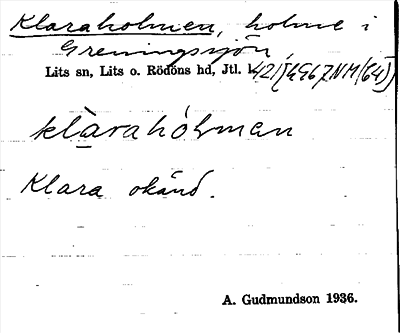 Klaraholmen, holme i
Greningssjön,
Lits sn, Lits o. Rödöns hd, Jtl. l. 421 [6967 NM (64)]
klàrahólmen
Klara okänd.
A. Gudmundson 1936.